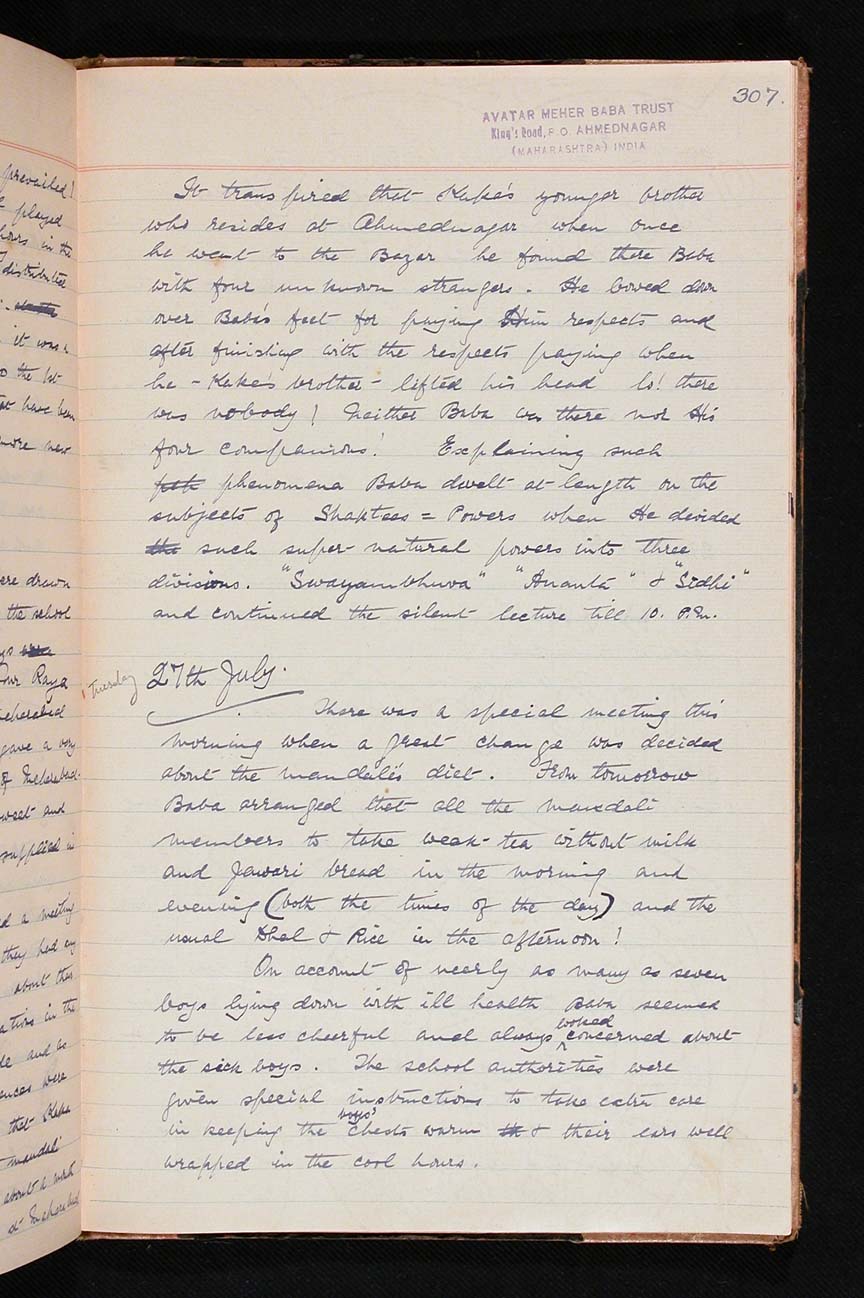 prevailed!
played
hours in the
distributed
it was a
to the 1st
have been
more new
were drawn
the school
Four Raya
Meherabad
gave a very
of Meherabad.
sweet and
supplied in
a meeting
they had any
about this
in the
and as
were
that Kaka
mandali
about a month
at Meherabad
307.
AVATAR MEHER BABA TRUST
King's Road, P.O. AHMEDNAGAR
(MAHARASHTRA) INDIA
It transpired that Kaka's younger brother
who resides at Ahmednagar when once
he went to the Bazar he found there Baba
with four unknown strangers. He bowed down
over Baba's feet for paying Him respects and
after finishing with the respects paying when
he - Kaka's brother - lifted his head lo! there
was nobody! Neither Baba was there nor His
four companions! Explaining such
phenomena Baba dwelt at length on the
subjects of Shaktees = Powers when He divided
the such super-natural powers into three
divisions. "Swayambhuva" "Ananta" & "Sidhi"
and continued the silent lecture till 10. P.M.
Tuesday 27th July.
There was a special meeting this
morning when a great change was decided
about the mandali's diet. From tomorrow
Baba arranged that all the mandali
members to take weak-tea without milk
and Jawari bread in the morning and
evening (both the times of the day) and the
usual Dhal & Rice in the afternoon!
On account of nearly as many as seven
boys lying down with ill health Baba seemed
to be less cheerful and always looked concerned about
the sick boys. The school authorities were
given special instructions to take extra care
in keeping the boys' chests warm & their ears well
wrapped in the cool hours.